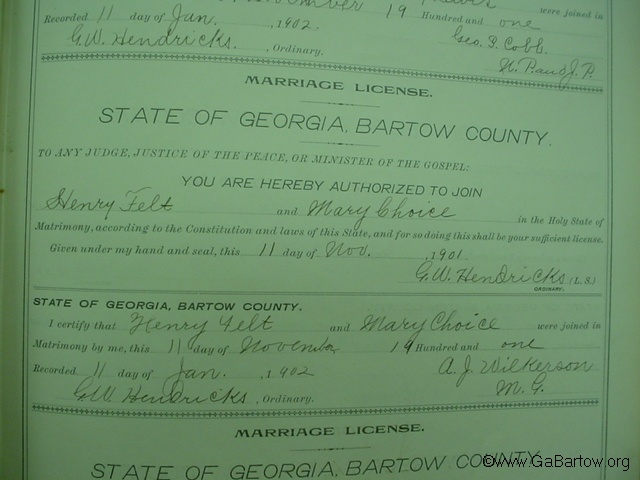 November 19 Hundred and one were joined in
Recorded 11 day of Jan. , 1902.
G.W. Hendricks. , Ordinary.
Geo. T. Cobb.
N. P. and J. P.
MARRIAGE LICENSE.
STATE OF GEORGIA, BARTOW COUNTY.
TO ANY JUDGE, JUSTICE OF THE PEACE, OR MINISTER OF THE GOSPEL:
YOU ARE HEREBY AUTHORIZED TO JOIN
Henry Felt and Mary Choice in the Holy State of
Matrimony, according to the Constitution and laws of this State, and for so doing this shall be your sufficient license.
Given under my hand and seal, this 11 day of Nov. , 1901.
G.W. Hendricks (L. S.)
ORDINARY.
STATE OF GEORGIA, BARTOW COUNTY.
I certify that Henry Felt and Mary Choice were joined in
Matrimony by me, this 11 day of November 19 Hundred and one
Recorded 11 day of Jan. , 1902 A. J. Wilkerson
G.W. Hendricks , Ordinary. M. G.
MARRIAGE LICENSE.
STATE OF GEORGIA, BARTOW COUNTY.
©www.GaBartow.org